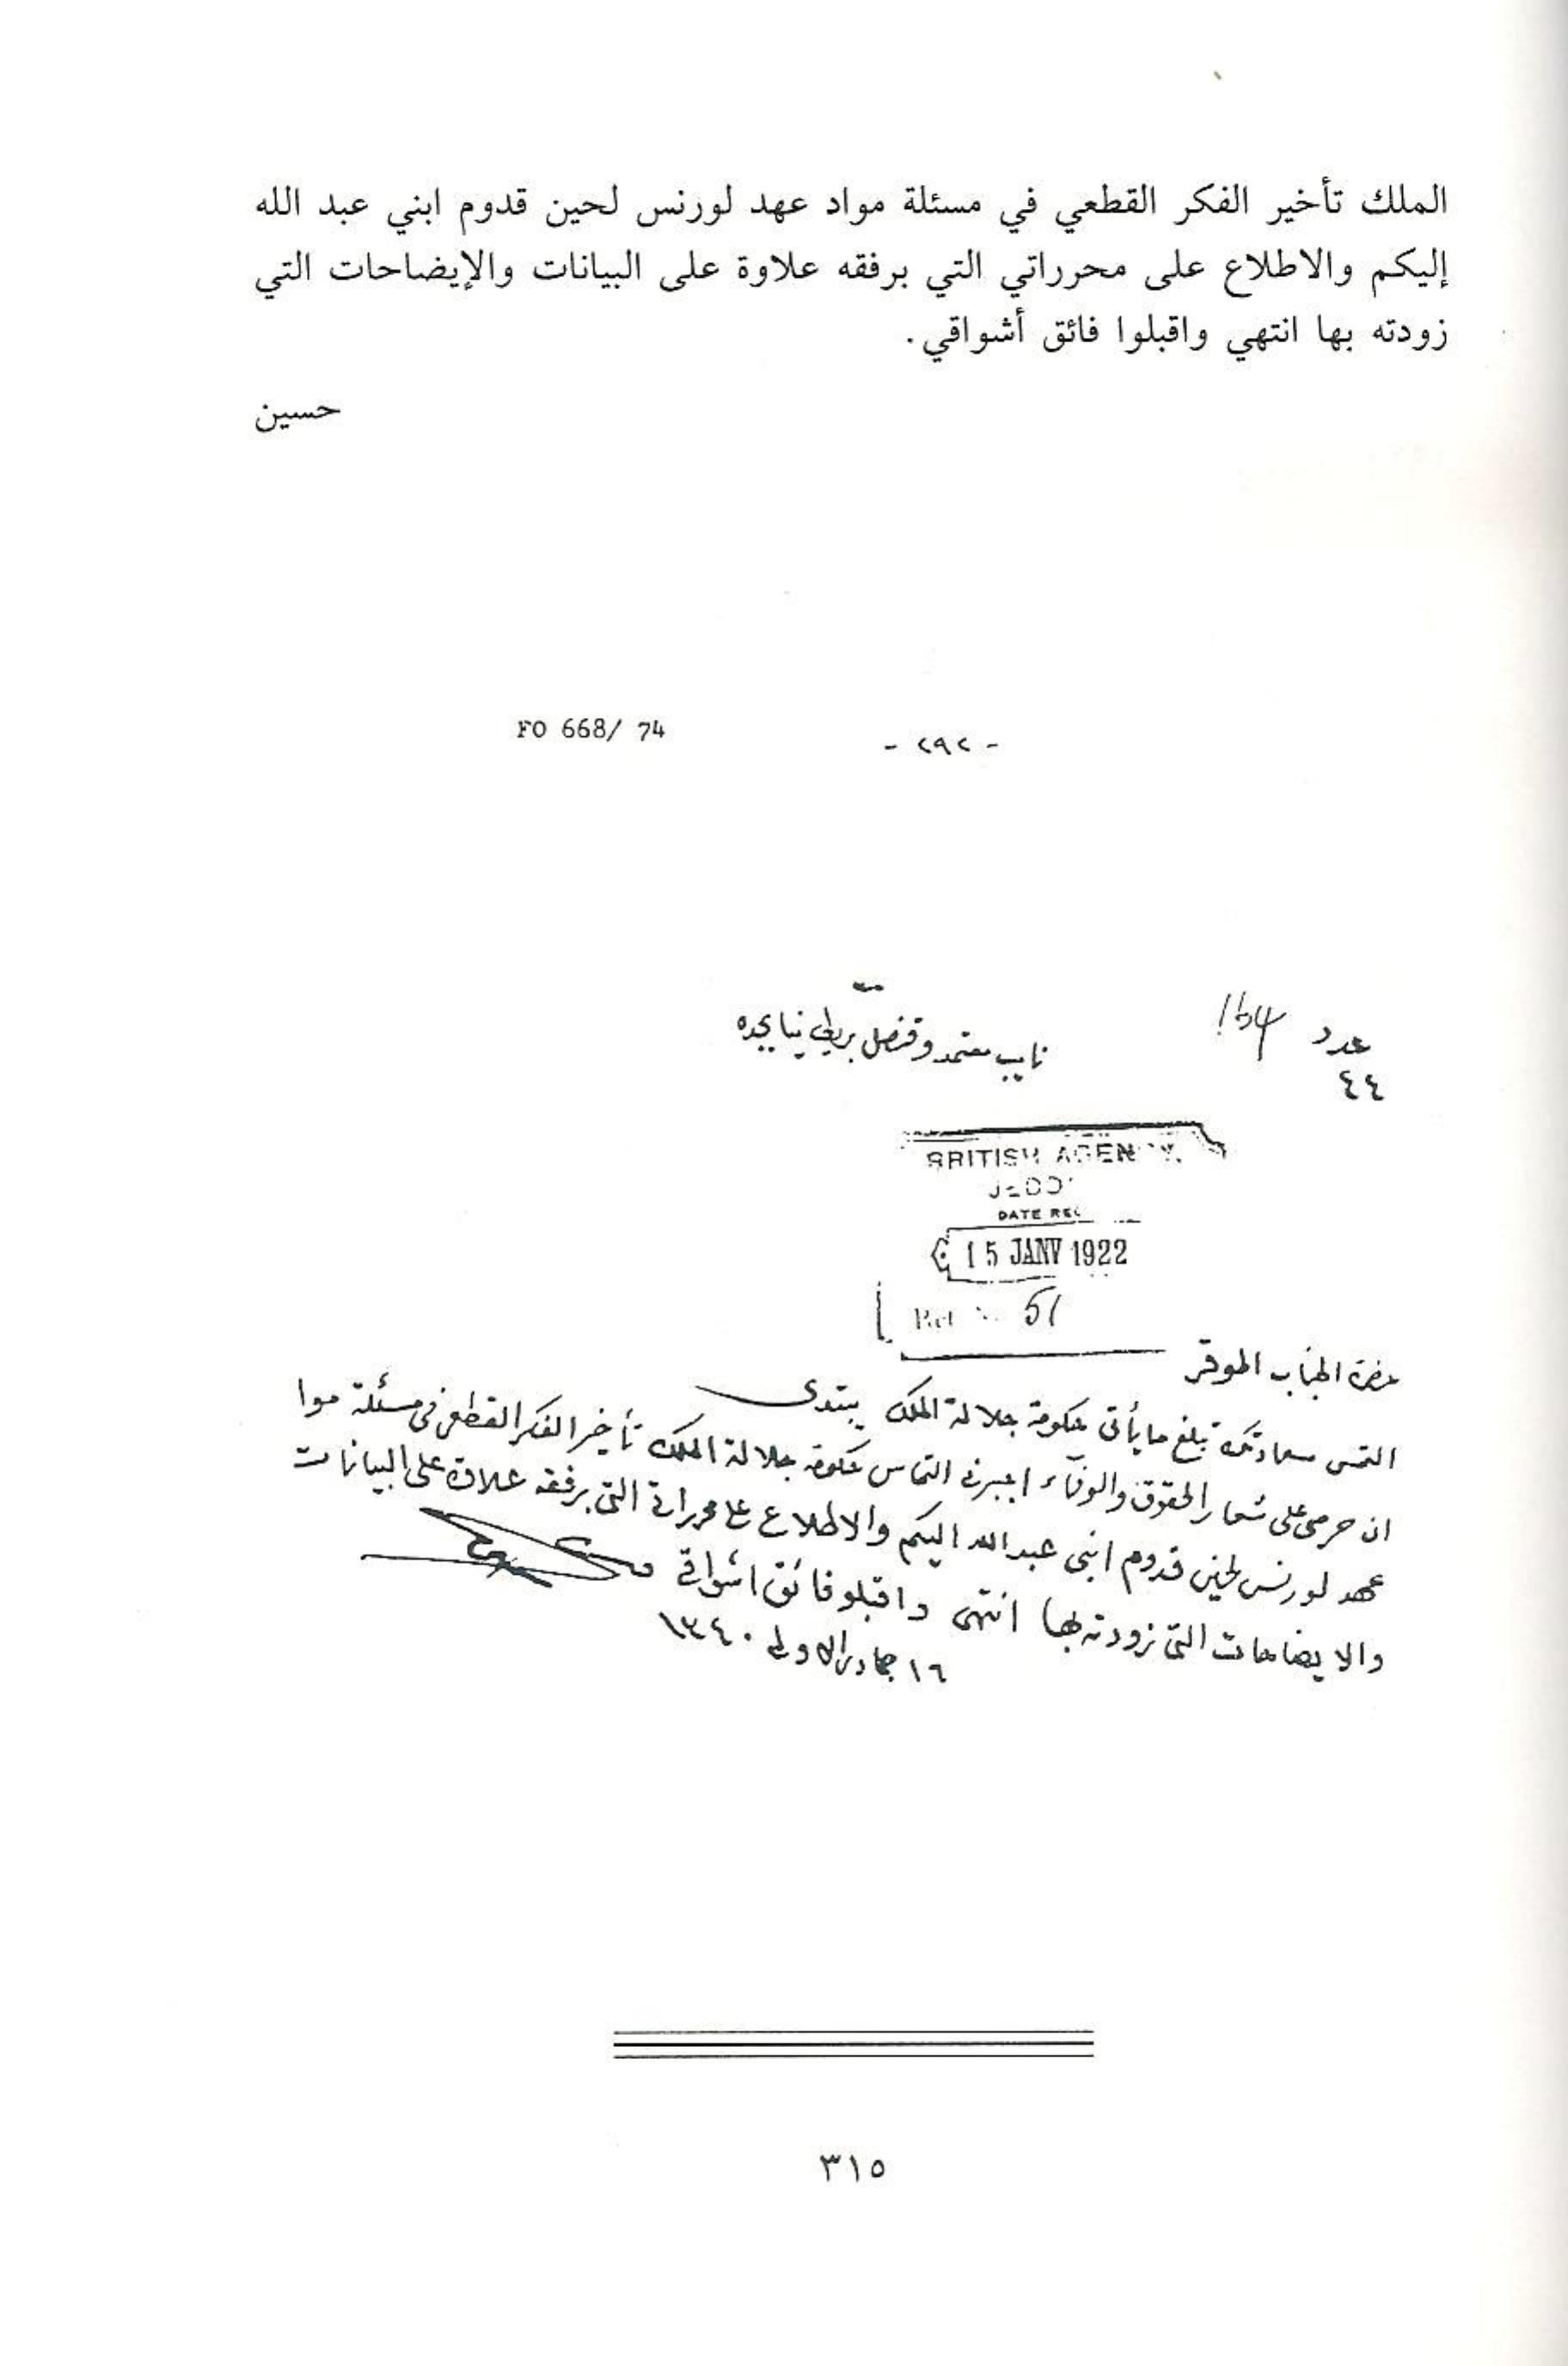 الملك تأخير الفكر القطعي في مسئلة مواد عهد لورنس لحين قدوم ابني عبد الله
إليكم والاطلاع على محرراتي التي برفقه علاوة على البيانات والإيضاحات التي
زودته بها انتهي واقبلوا فائق أشواقي.
حسين
FO 668/ 74
- ٢٩٢ -
عدد
٤٤
نايب معتمد وقنصل بريطانيا بجده
BRITISH AGENCY,
DATE REC
15 JANV 1922
Ref 51
حضرة الجناب الموقر
التمس سعادتكم تبلغ ما يأتى حكومة جلالة الملك يبتدى
ان حرصى على شعار الحقوق والوفآء اجبرنى التماس حكومة جلالة الملك تأخير الفكر القطعى فى مسئلة موا
عهد لورنس لحين قدوم ابنى عبدالله اليكم والاطلاع على محرراتى التى برفقه علاوة على البيانات
والايضاحات التى زودته بها انتهى واقبلو فائق اشواقى
١٦ جمادى الاولى ١٣٤٠
٣١٥